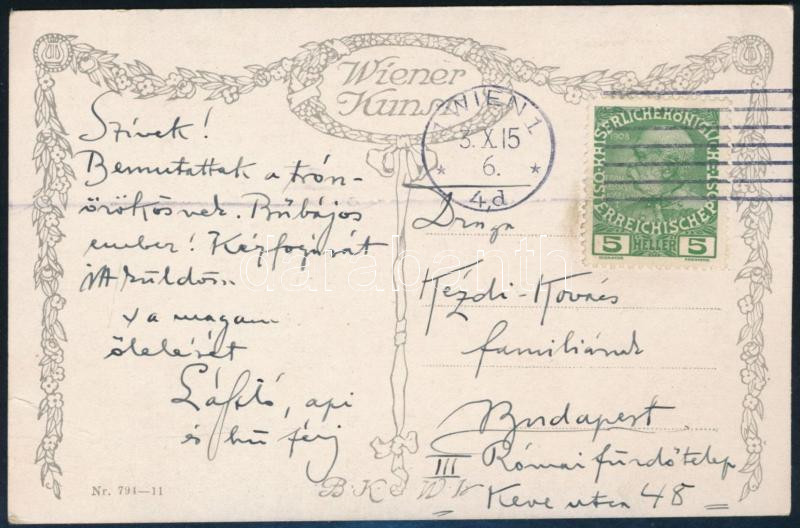 Wiener
Kunst
WIEN 1
3.X.15
6.
* *
4,d
1908
KAISERLICHE KÖNIGLICHE
ÖSTERREICHISCHE POST
5 HELLER 5
Szívek!
Bemutattak a trón-
örökösnek. Bűbájos
ember! Kézfogását
itt küldöm
a magam
ölelését
László, api
és hű férj
Drága
Kézdi-Kovács
familiának
Budapest
III Római fürdőtelep
Keve utca 48
Nr. 791—11
B.K.W.I.
darabanth